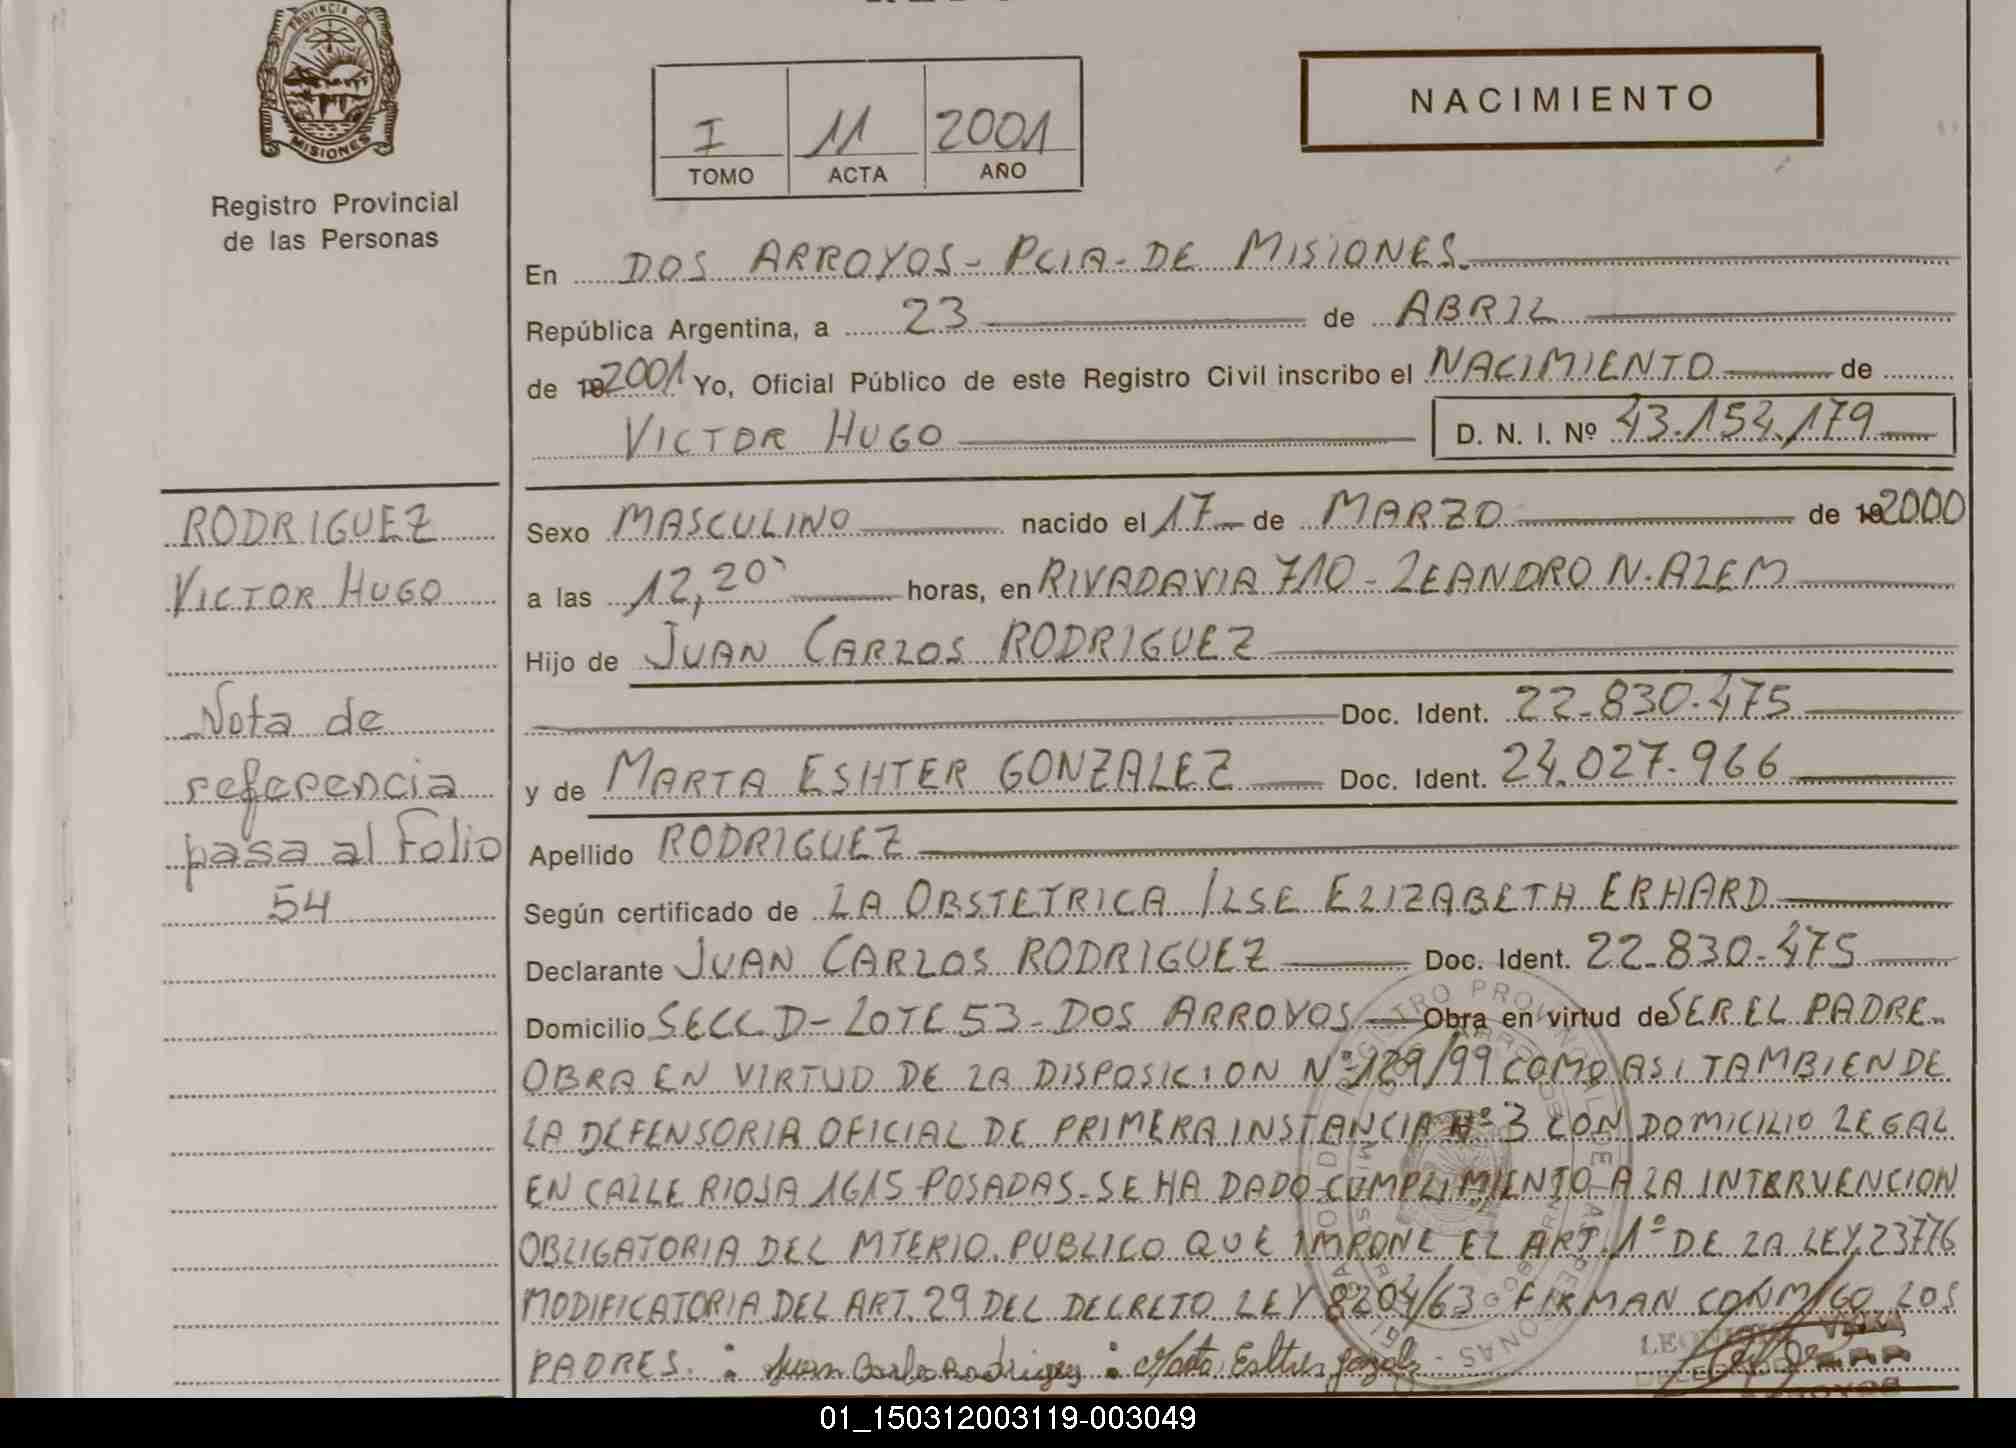 PROVINCIA DE
MISIONES
Registro Provincial
de las Personas
I 11 2001
TOMO ACTA AÑO
NACIMIENTO
En DOS ARROYOS - PCIA - DE MISIONES.
República Argentina, a 23 de ABRIL
de 192001 Yo, Oficial Público de este Registro Civil inscribo el NACIMIENTO de
VICTOR HUGO D. N. I. Nº 43.154.179
RODRIGUEZ
VICTOR HUGO
Nota de
referencia
pasa al Folio
54
Sexo MASCULINO nacido el 17 de MARZO de 192000
a las 12,20 horas, en RIVADAVIA 710 - LEANDRO N. ALEM
Hijo de JUAN CARLOS RODRIGUEZ
Doc. Ident. 22.830.475
y de MARTA ESHTER GONZALEZ Doc. Ident. 24.027.966
Apellido RODRIGUEZ
Según certificado de LA OBSTETRICA ILSE ELIZABETH ERHARD
Declarante JUAN CARLOS RODRIGUEZ Doc. Ident. 22.830.475
Domicilio SECC D - LOTE 53 - DOS ARROYOS Obra en virtud de SER EL PADRE.
OBRA EN VIRTUD DE LA DISPOSICION Nº 129/99 COMO ASI TAMBIEN DE
LA DEFENSORIA OFICIAL DE PRIMERA INSTANCIA Nº 3 CON DOMICILIO LEGAL
EN CALLE RIOJA 1615 POSADAS. SE HA DADO CUMPLIMIENTO A LA INTERVENCION
OBLIGATORIA DEL MTERIO. PUBLICO QUE IMPONE EL ART. 1º DE LA LEY 23776
MODIFICATORIA DEL ART. 29 DEL DECRETO LEY 8204/63 FIRMAN CONMIGO LOS
PADRES. : Juan Carlos Rodriguez : Marta Eshter Gonzalez
01_150312003119-003049